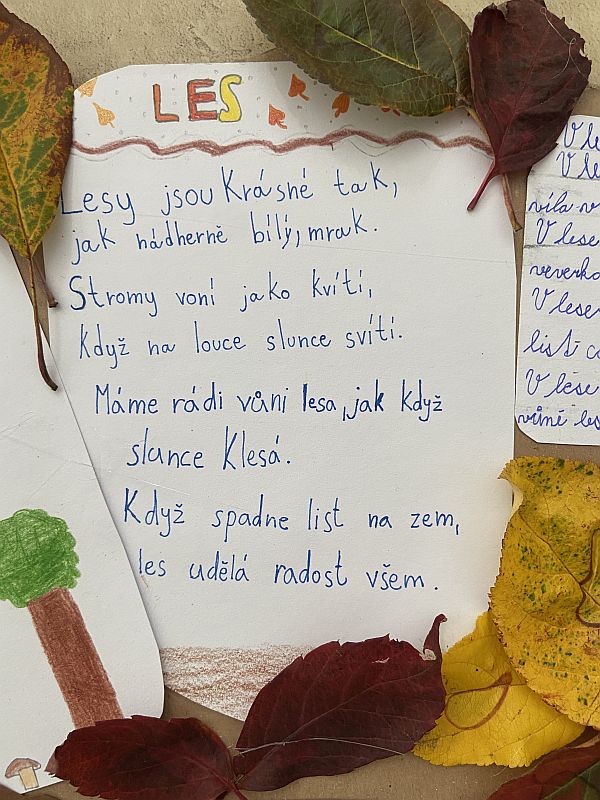 LES
Lesy jsou Krásné tak,
jak nádherně bílý, mrak.
Stromy voní jako kvítí,
Když na louce slunce svítí.
Máme rádi vůni lesa, jak Když
slunce Klesá.
Když spadne list na zem,
les udělá radost všem.
V le
V le
víla v
V lese
veverka
V lese
list
V lese
vůně les